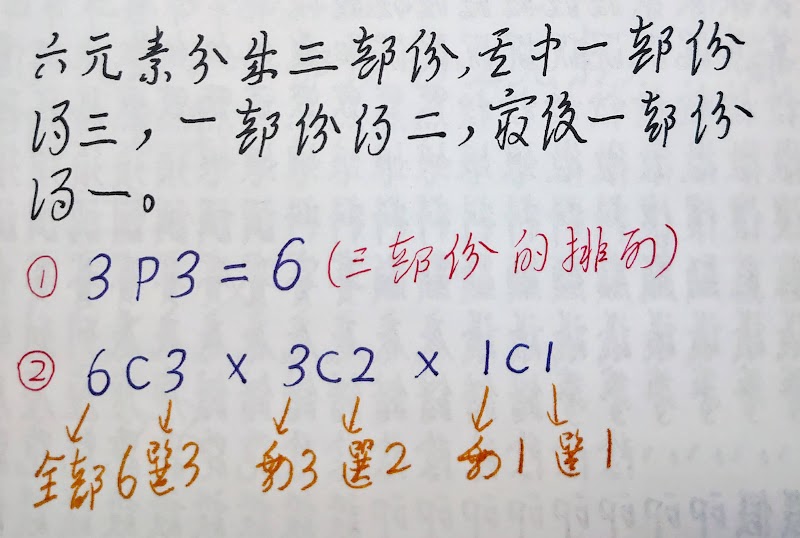 六元素分成三部份,其中一部份
得三，一部份得二，最後一部份
得一。
① 3P3 = 6 (三部份的排列)
② 6C3 x 3C2 x 1C1
全部6選3 剩3選2 剩1選1